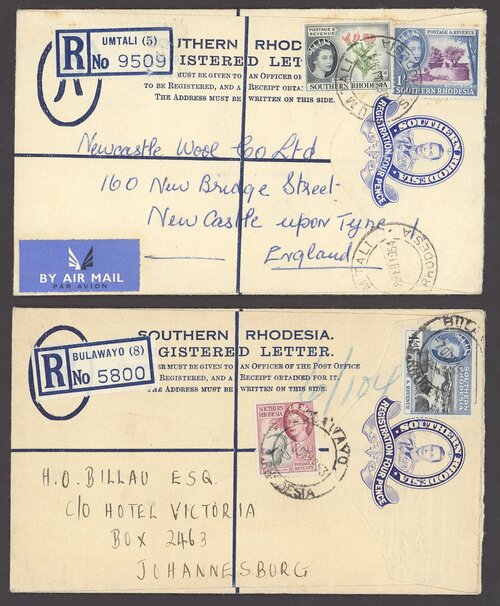 UMTALI (5)
R No 9509
UTHERN RHOD
GISTERED LET
MUST BE GIVEN TO AN OFFICER OF
TO BE REGISTERED, AND A RECEIPT OBTAI
THE ADDRESS MUST BE WRITTEN ON THIS SIDE.
POSTAGE & REVENUE
SOUTHERN RHODESIA
POSTAGE & REVENUE
1/-
SOUTHERN RHODESIA
SOUTHERN RHODESIA
REGISTRATION FOUR PENCE
Newcastle Wool Co Ltd
160 New Bridge Street
New Castle upon Tyne 1
England
BY AIR MAIL
PAR AVION
UMTALI
RHODESIA
SOUTHERN RHODESIA.
GISTERED LETTER.
MUST BE GIVEN TO AN OFFICER OF THE POST OFFICE
REGISTERED, AND A RECEIPT OBTAINED FOR IT.
THE ADDRESS MUST BE WRITTEN ON THIS SIDE.
BULAWAYO (8)
R No 5800
SOUTHERN RHODESIA
POSTAGE & REVENUE
SOUTHERN RHODESIA
SOUTHERN RHODESIA
REGISTRATION FOUR PENCE
H.O. BILLAU ESQ.
C/O HOTEL VICTORIA
BOX 2463
JOHANNESBURG